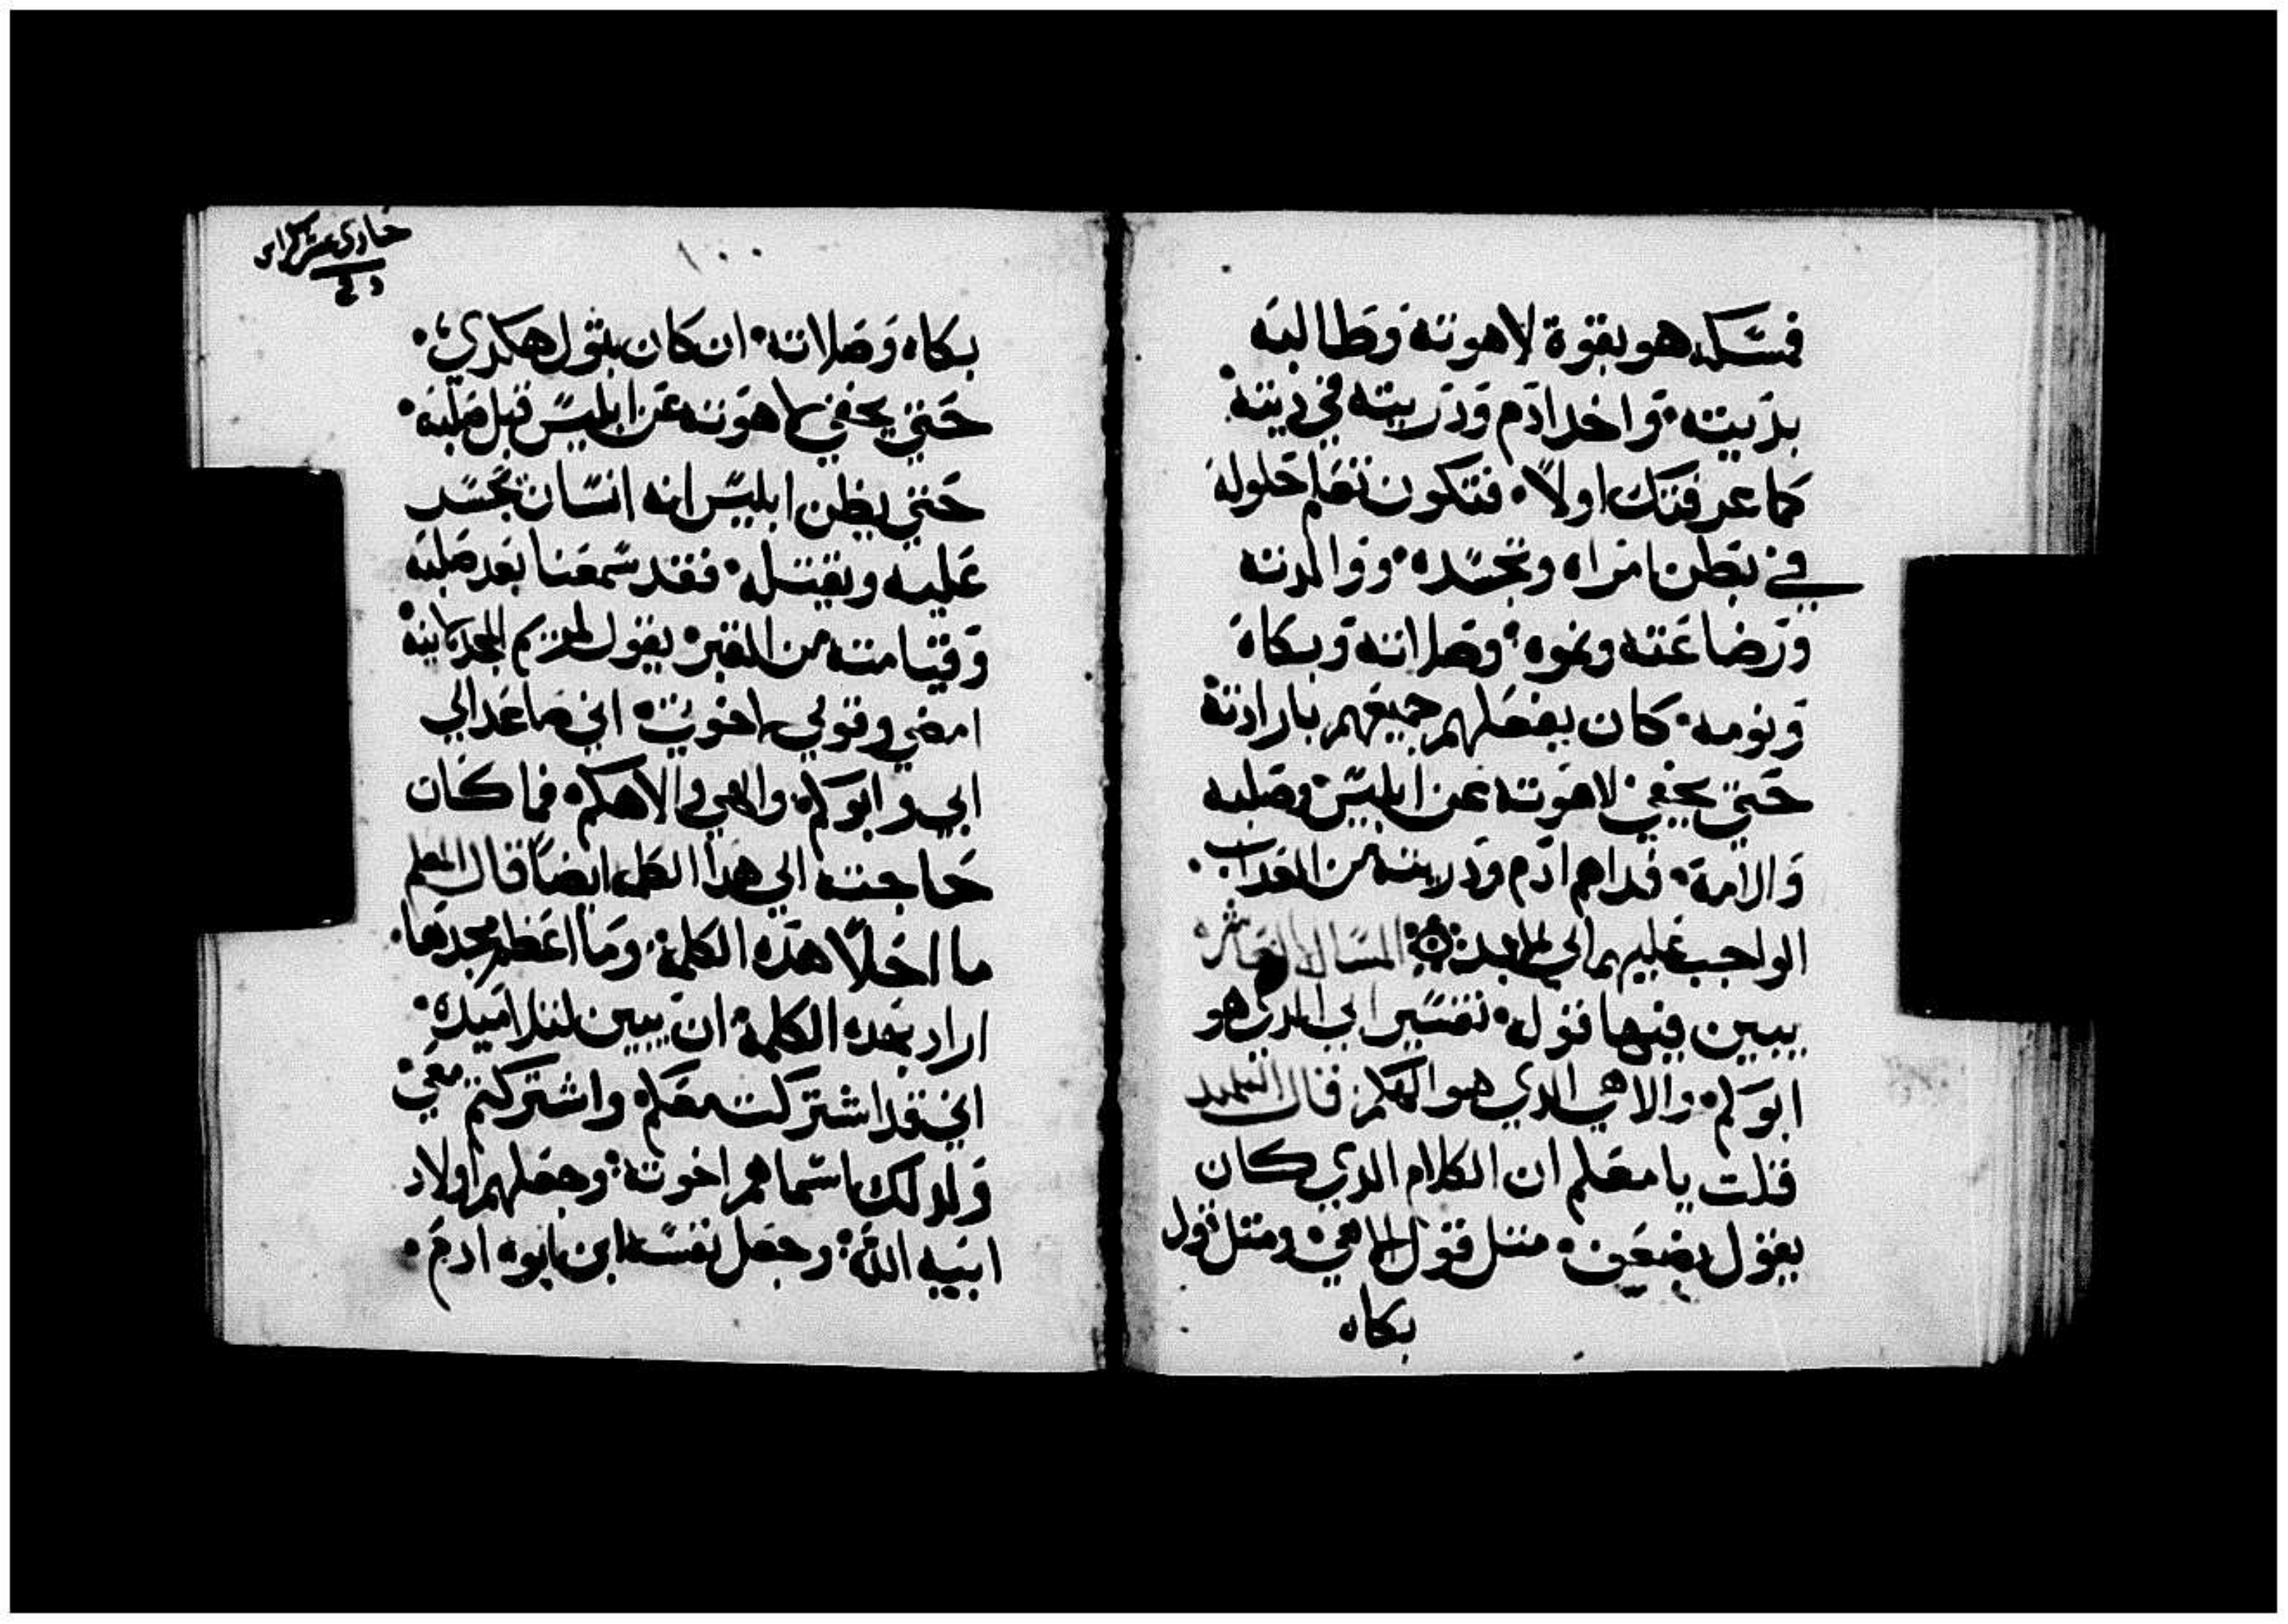 فمسكه هو بقوة لاهوته وطالبه
بديته. واخد ادم ودريته في ديته.
كما عرفتك اولاً. فتكون تعلم حلوله
في بطن امراه وتجسده. ووالدته
ورضاعته ونموه. وصلاته وبكاه
ونومه. كان يفعلهم جميعهم بارادته
حتي يخفي لاهوته عن ابليس وصلبه
والامه. فداهم ادم ودريته من العداب.
الواجب عليهم الي الابد. المساله العاشره
يبين فيها قوله. تفسير ابي الدي هو
ابوكم. والاهي الدي هو الهكم. قال التلميد
قلت يا معلم ان الكلام الدي كان
يقول بضعف. متل قول الاهي. ومتل قول
بكاه
حادي عشر كراس
١٠٠
بكاه وصلاته. ان كان يقول هكدي.
حتي يخفي لاهوته عن ابليس قبل صلبه.
حتي يظن ابليس انه انسان تجسد
عليه ويقتله. فقد سمعنا بعد صلبه
وقيامته من القبر. يقول لمريم المجدلانيه
امضي وقولي لاخوتي. اني صاعد الي
ابي وابوكم. والهي والاهكم. فما كان
حاجته الي هدا الكلام ايضاً قال المعلم
ما احلاً هده الكلمة. وما اعظم مجدها.
اراد بهده الكلمة ان يبين لتلاميده.
اني قد اشتركت معكم. واشتركتم معي.
ولدلك اسماهم اخوته. وجعلهم اولاد
ابيه الله. وجعل نفسه ابن ابوه ادم.